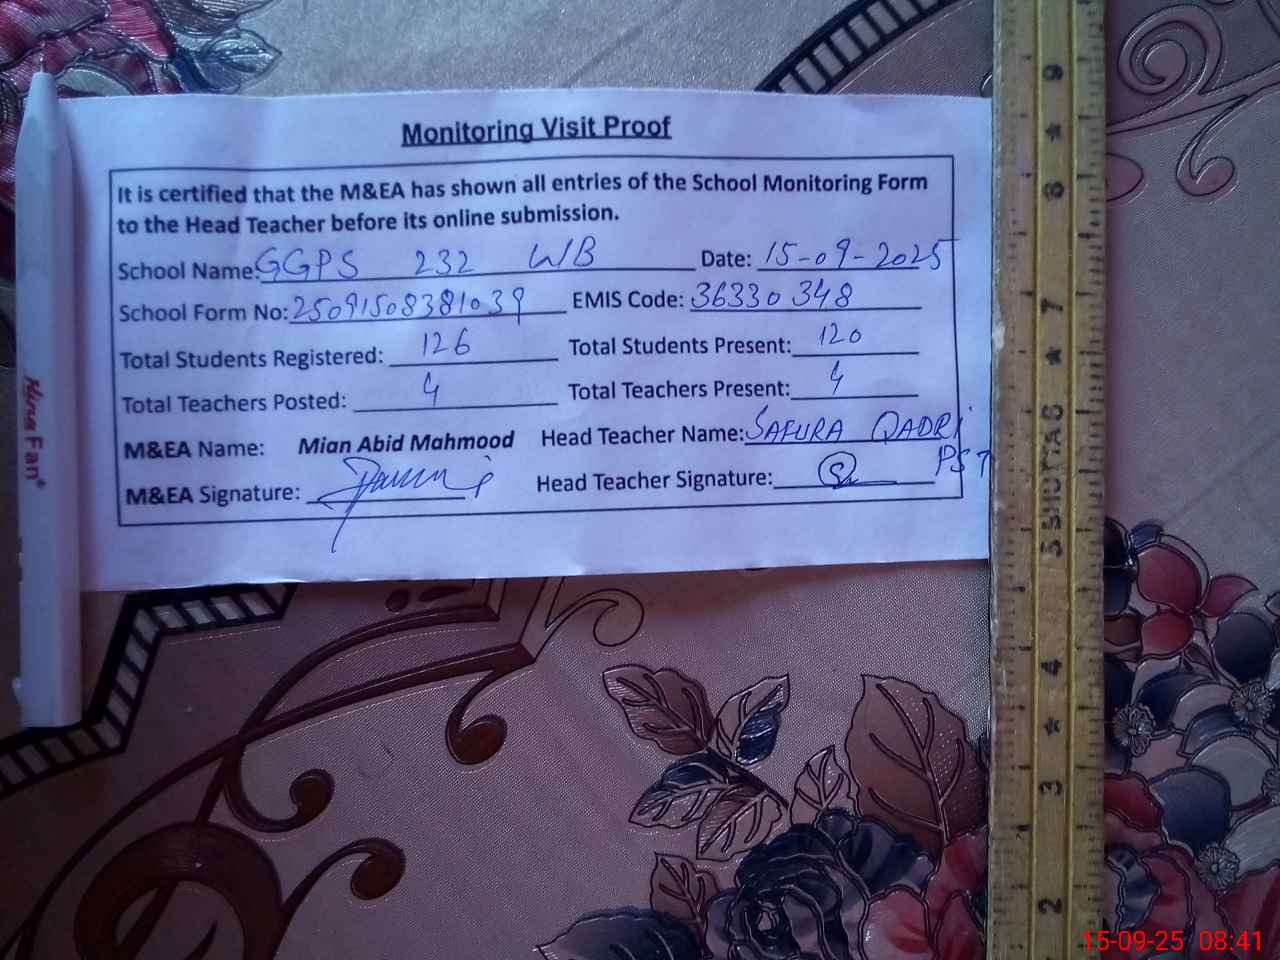 Monitoring Visit Proof
It is certified that the M&EA has shown all entries of the School Monitoring Form
to the Head Teacher before its online submission.
School Name: GGPS 232 W/B Date: 15-09-2025
School Form No: 25091508381039 EMIS Code: 36330348
Total Students Registered: 126 Total Students Present: 120
Total Teachers Posted: 4 Total Teachers Present: 4
M&EA Name: Mian Abid Mahmood Head Teacher Name: SAFURA QADRI
PST
M&EA Signature: Head Teacher Signature:
Hira Fan
9
8
7
6
5
4
3
2
15-09-25 08:41